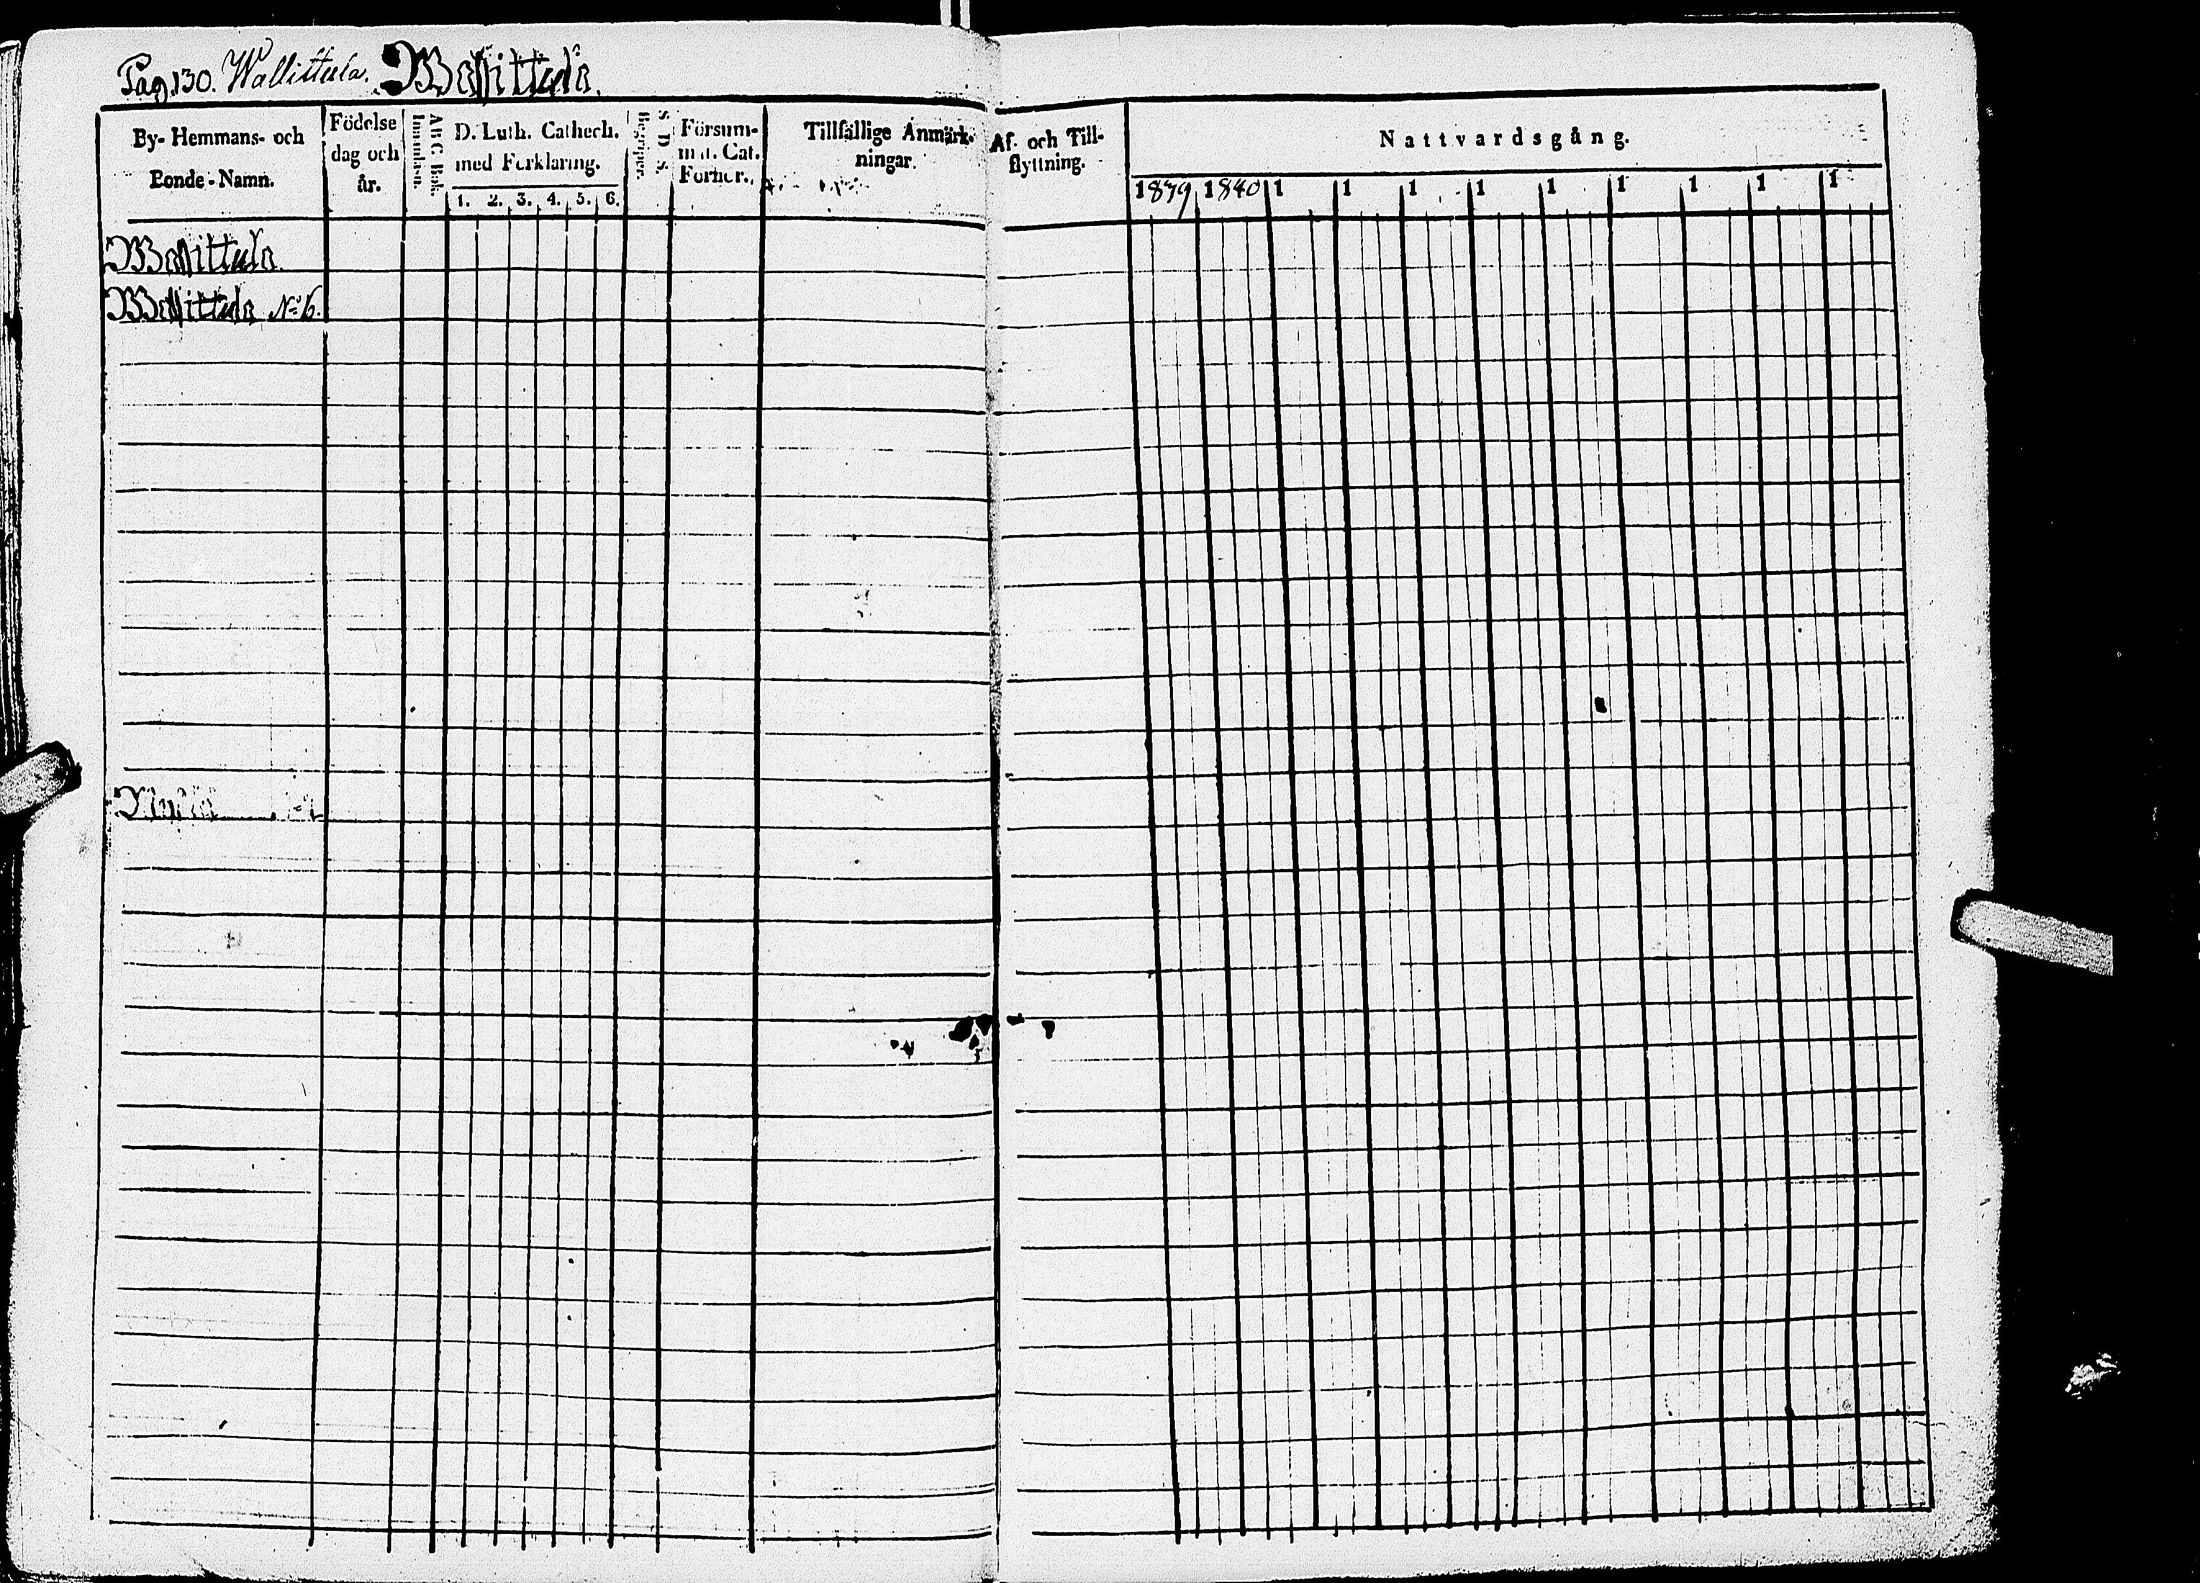 Pag. 130. Wallittula. Wallittula.
By- Hemmans- och
Bonde-Namn.
Födelse
dag och
år.
ABC Bok.
Innanläsn.
D. Luth. Cathech.
med Förklaring.
1. 2. 3. 4. 5. 6.
S. D. S.
Begreppet.
Försum-
mat. Cat.
Förhör.
Tillfällige Anmärk-
ningar.
Af- och Till-
flyttning.
Nattvardsgång.
1839 1840 1 1 1 1 1 1 1 1 1
Wallittula.
Wallittula No 6.